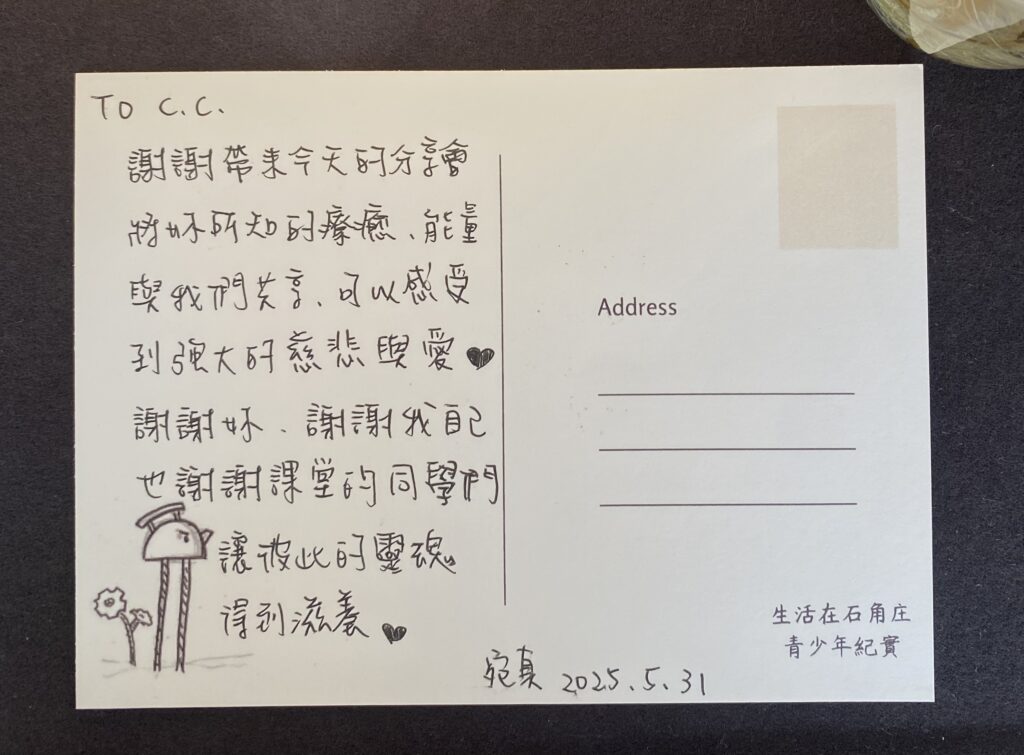 TO C.C.
謝謝帶來今天的分享會
將妳所知的療癒、能量
與我們共享、可以感受
到強大的慈悲與愛
謝謝妳、謝謝我自己
也謝謝課堂的同學們
讓彼此的靈魂
得到滋養
宛真 2025.5.31
Address
生活在石角庄
青少年紀實